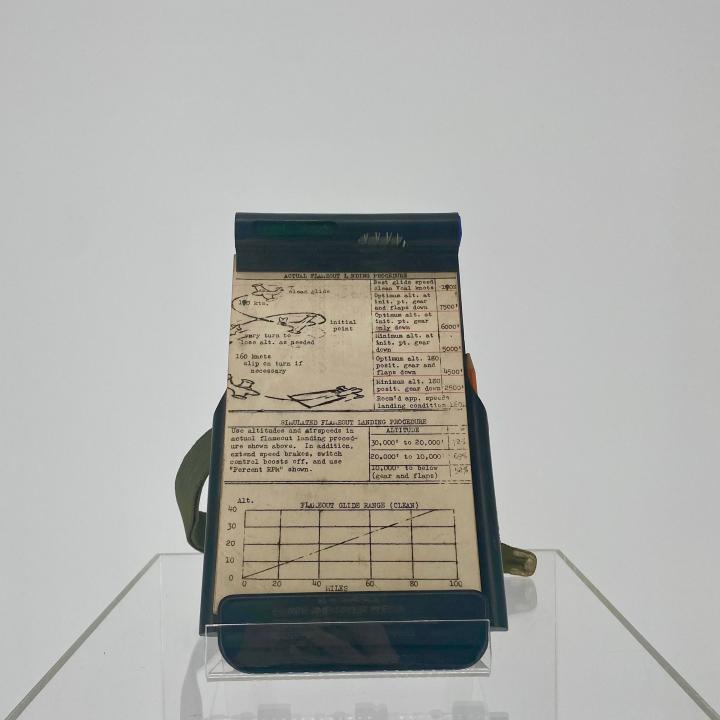 ACTUAL FLAMEOUT LANDING PROCEDURE
clean glide
kts.
initial
point
vary turn to
lose alt. as needed
160 knots
slip on turn if
necessary
Best glide speed
clean knots
Optimum alt. at
init. pt. gear
and flaps down 7500'
Optimum alt. at
init. pt. gear
only down 6000'
Minimum alt. at
init. pt. gear
down 5000'
Optimum alt. 180
posit. gear and
flaps down 4500'
Minimum alt. 180
posit. gear down 2500'
Recm'd app. speeds
landing condition
SIMULATED FLAMEOUT LANDING PROCEDURE
Use altitudes and airspeeds in
actual flameout landing proced-
ure shown above. In addition,
extend speed brakes, switch
control boosts off, and use
"Percent RPM" shown.
ALTITUDE
30,000' to 20,000'
20,000' to 10,000'
10,000' to below
(gear and flaps)
Alt.
FLAMEOUT GLIDE RANGE (CLEAN)
40
30
20
10
0
0 20 40 60 80 100
MILES